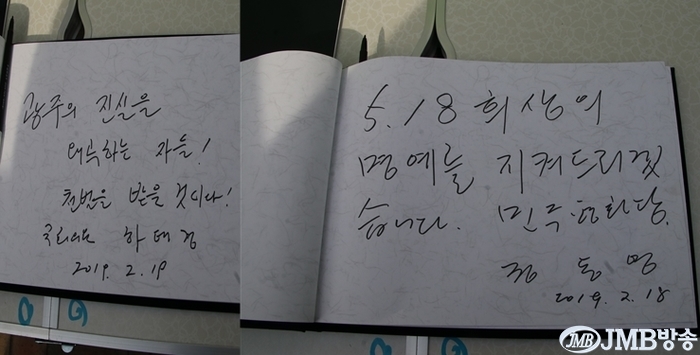 광주의 진실을
왜곡하는 자들!
천벌을 받을 것이다!
국회의원 하태경
2019. 2. 19
5.18 희생의
명예를 지켜드리겠
습니다. 민주평화당.
정동영
2019. 2. 18
JMB JMB방송